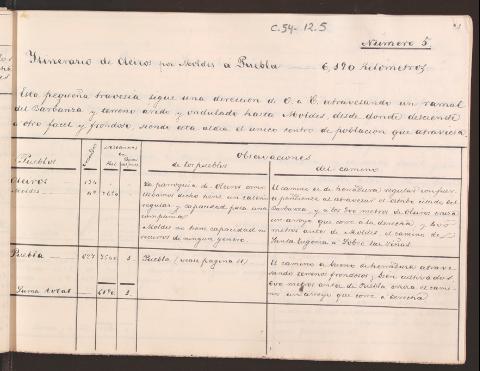 C.54-12.5
Número 5
Itinerario de Oleiros por Moldes a Puebla 6,190 Kilómetros
Esta pequeña travesía sigue una dirección de O. a E. atravesando un ramal
del Barbanza y terreno árido y ondulado hasta Moldes, desde donde desciende
a otro fácil y frondoso, siendo esta aldea el único centro de población que atraviesa.
Observaciones
Pueblos
de los pueblos
del camino
Oleiros
Moldes
La parroquia de Oleiros como
dicho tiene un caserío
regular y capacidad para una
compañía
Moldes no tiene capacidad ni
recursos de ningún género.
El camino es de herradura regular con fuerte
pendiente al atravesar el estribo citado del
Barbanza y a los 300 metros de Oleiros cruza
un arroyo que corre a la derecha, y
metros antes de Moldes el camino de
Santa Eugenia a
Puebla
Puebla (véase página 11)
El camino es bueno de herradura atrave-
sando terrenos frondosos y bien cultivados
600 metros antes de Puebla cruza el cami-
no un arroyo que corre a derecha
Suma total